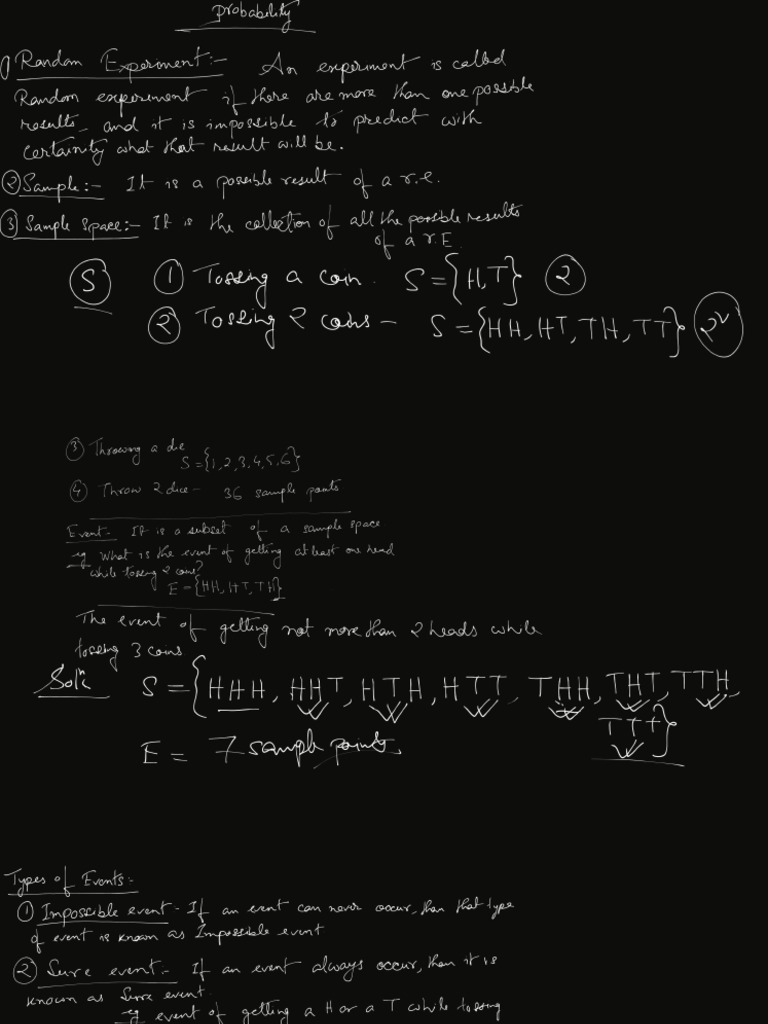 Probability
1) Random Experiment:- An experiment is called
Random experiment if there are more than one possible
results, and it is impossible to predict with
certainty what that result will be.
② Sample:- It is a possible result of a r.e.
③ Sample space:- It is the collection of all the possible results
of a r.E.
S ① Tossing a coin. S={H,T} ②
② Tossing 2 coins- S={HH, HT, TH, TT} 2²
③ Throwing a die
S={1,2,3,4,5,6}
④ Throw 2 dice- 36 sample points
Event:- It is a subset of a sample space
eg What is the event of getting at least one head
while tossing 2 coins?
E={HH, HT, TH}
The event of getting not more than 2 heads while
tossing 3 coins
Soln S={HHH, HHT, HTH, HTT, THH, THT, TTH,
TTT}
E = 7 sample points.
Types of Events:-
① Impossible event- If an event can never occur, then that type
of event is known as Impossible event
② Sure event:- If an event always occur, then it is
known as Sure event.
eg event of getting a H or a T while tossing